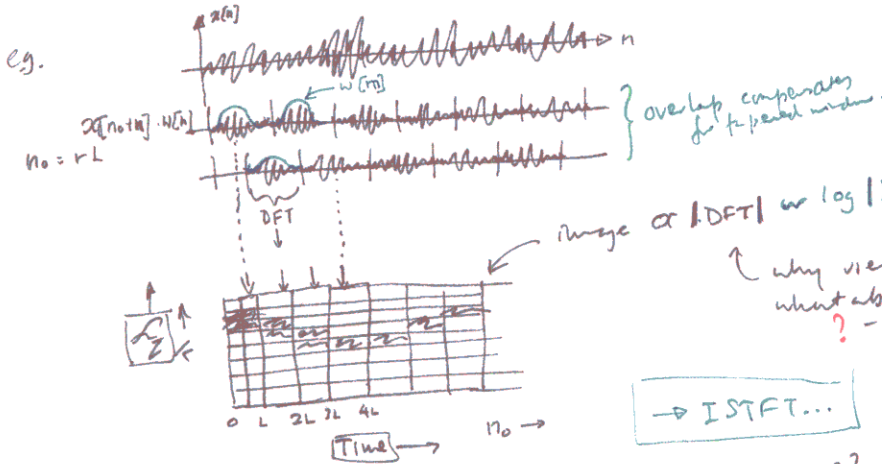 e.g.
x[n]
n
w[m]
x[n₀+n]·w[n]
n₀ = rL
overlap compensates
for tapered window
DFT
image or |DFT| or log |
why vie
what ab
?
0 L 2L 3L 4L
n₀ →
Time →
→ ISTFT...